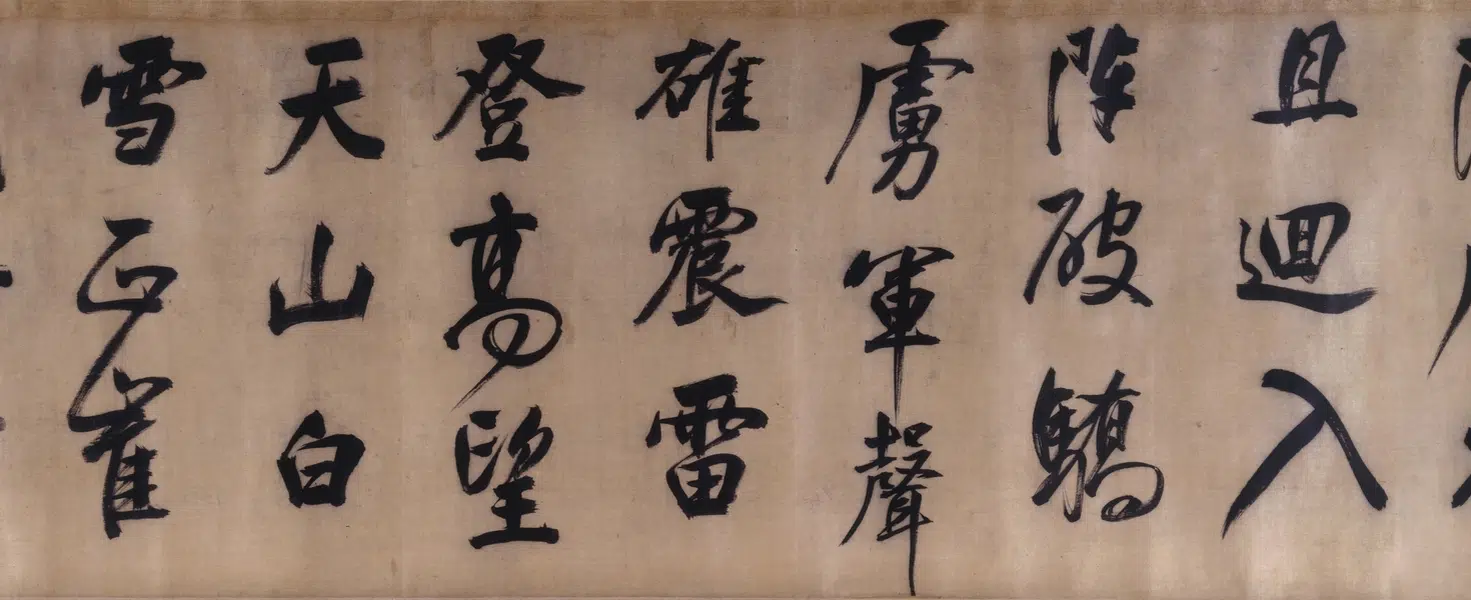 且迴入
陣破驕
虜軍聲
雄震雷
登高望
天山白
雪正崔